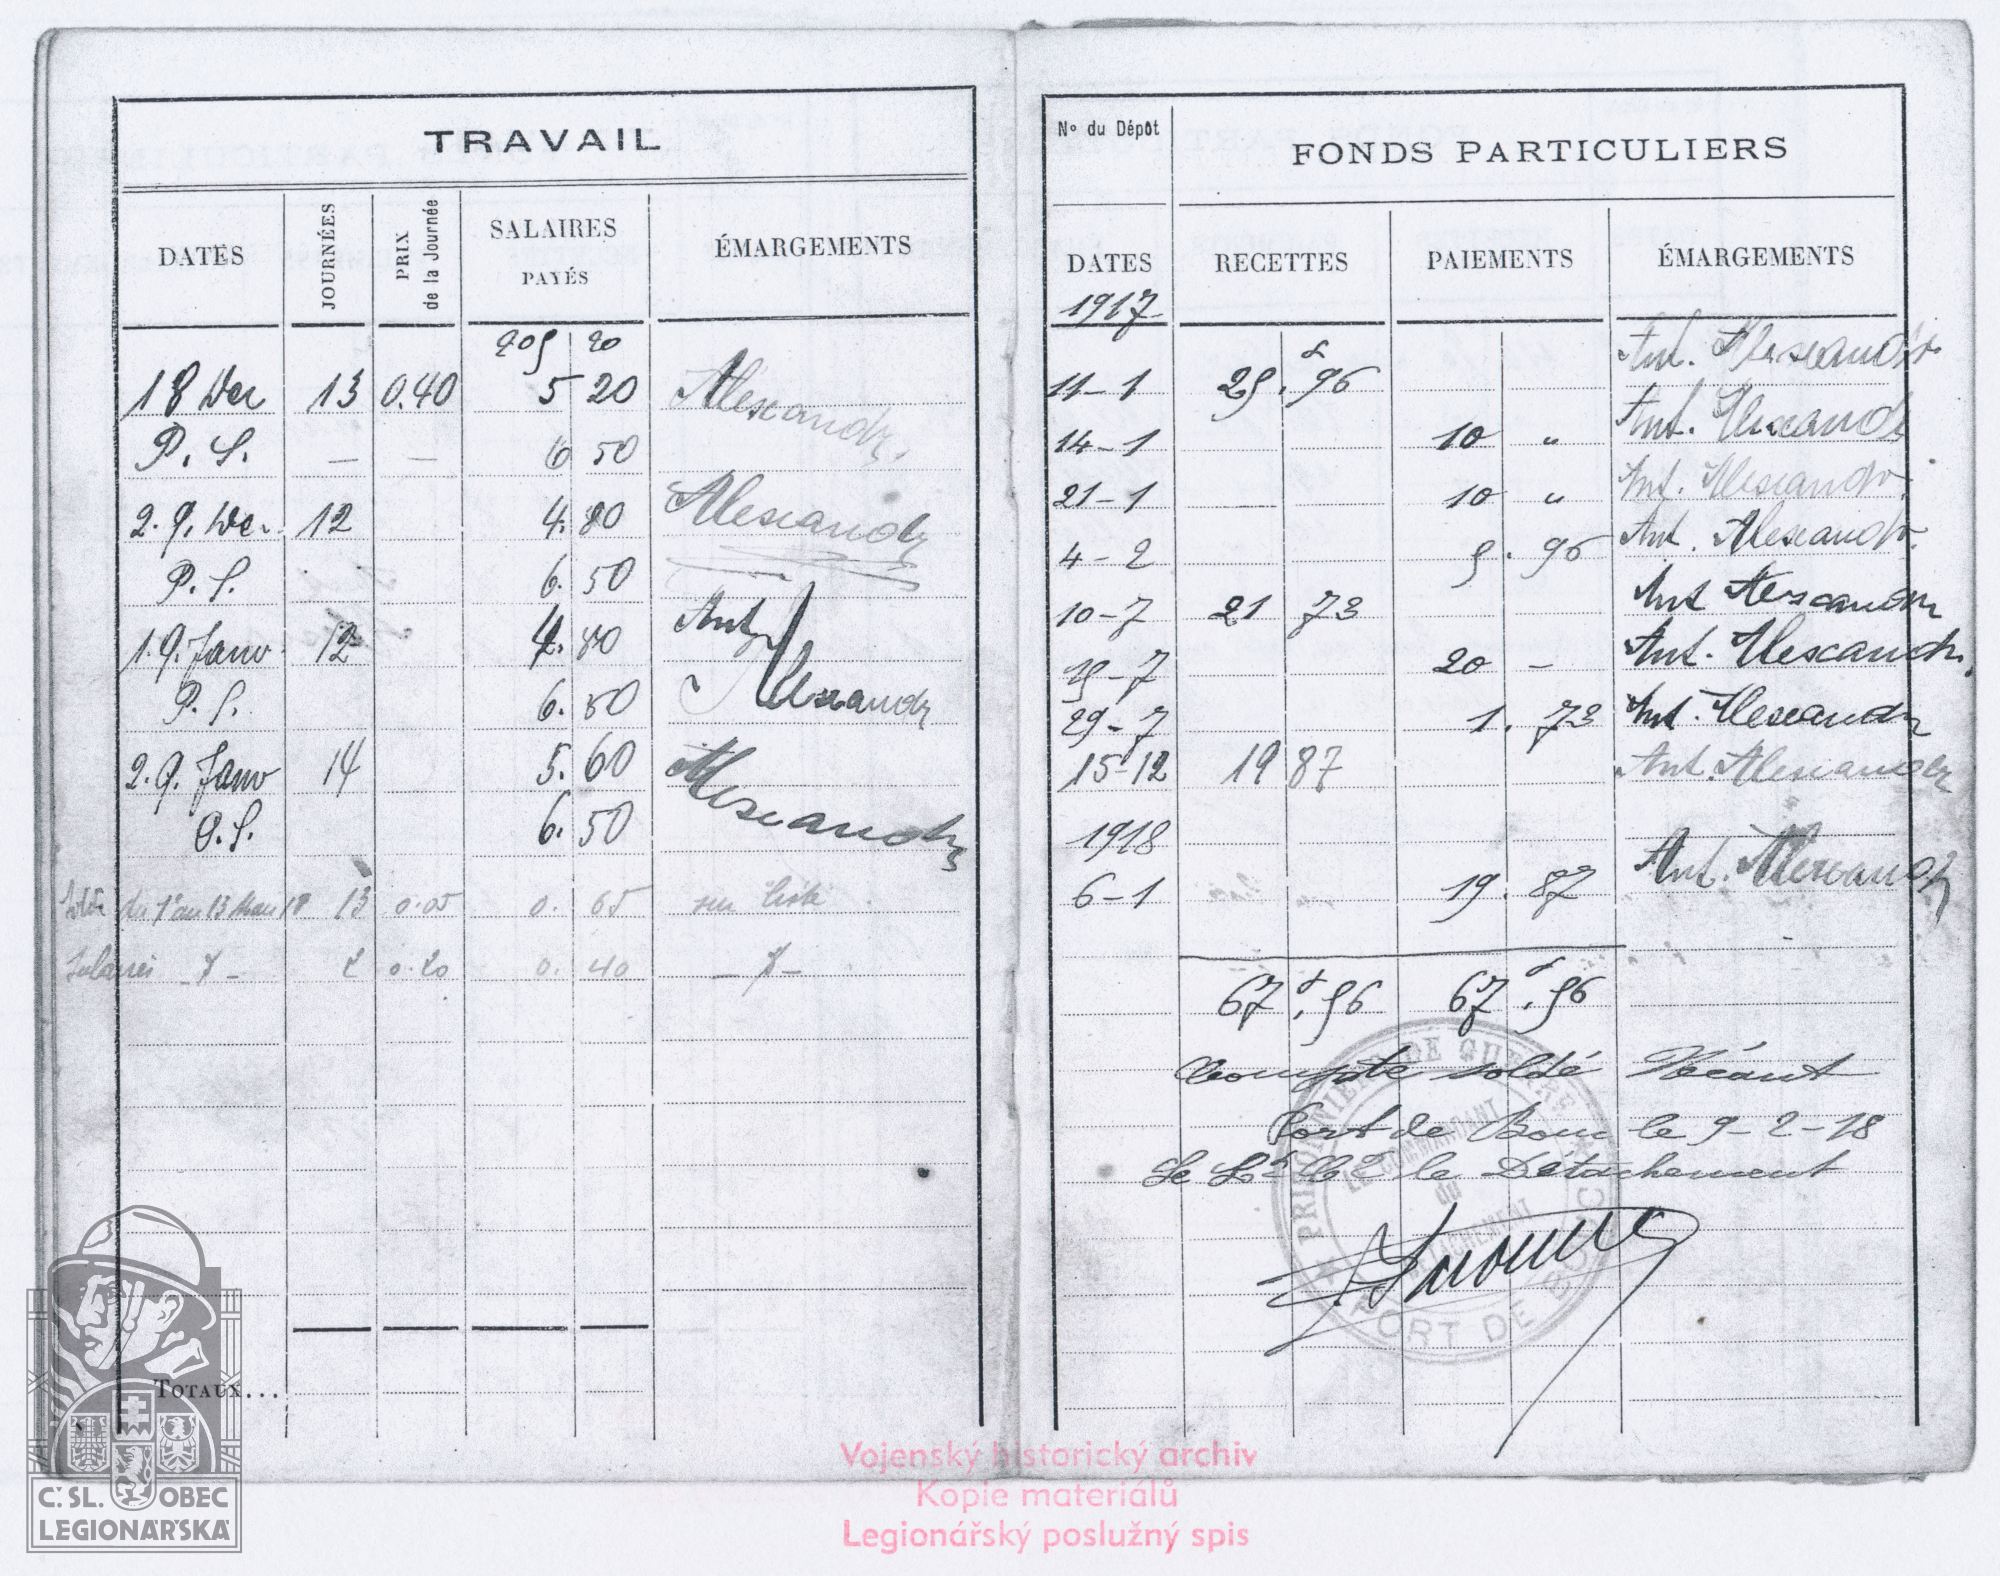 TRAVAIL
DATES JOURNÉES PRIX de la Journée SALAIRES PAYÉS ÉMARGEMENTS
205 20
18 Dec 13 0.40 5 20 Alescandr.
P. S. — — 6 50
2. Q. Dec. 12 4. 80 Alescandr
P. S. 6. 50
1. Q. Janv 12 4. 80 Ant
P. S. 6. 50 Alescandr
2. Q. Janv 14 5. 60 Alescandr
P. S. 6. 50
du 1er au 13 18 13 0.05 0. 65
2 0.20 0. 40
TOTAUX...
No du Dépôt FONDS PARTICULIERS
DATES RECETTES PAIEMENTS ÉMARGEMENTS
1917
11-1 25. 96 Ant. Alescandr
14-1 10 " Ant. Alescandr
21-1 10 " Ant. Alescandr.
4-2 5. 96 Ant. Alescandr.
10-7 21 73 Ant Alescandr
15-7 20 — Ant. Alescandr.
29-7 1. 73 Ant. Alescandr
15-12 19 87 Ant. Alescandr
1918
6-1 19. 87 Ant. Alescandr
67f. 56 67f. 56
Compte soldé Néant
Port de Bouc le 9-2-18
Le Lt Ct le Détachement
PRISONNIERS DE GUERRE
LE COMMANDANT
du
DÉTACHEMENT
PORT DE BOUC
Č. SL. OBEC
LEGIONÁŘSKÁ
Vojenský historický archiv
Kopie materiálů
Legionářský poslužný spis